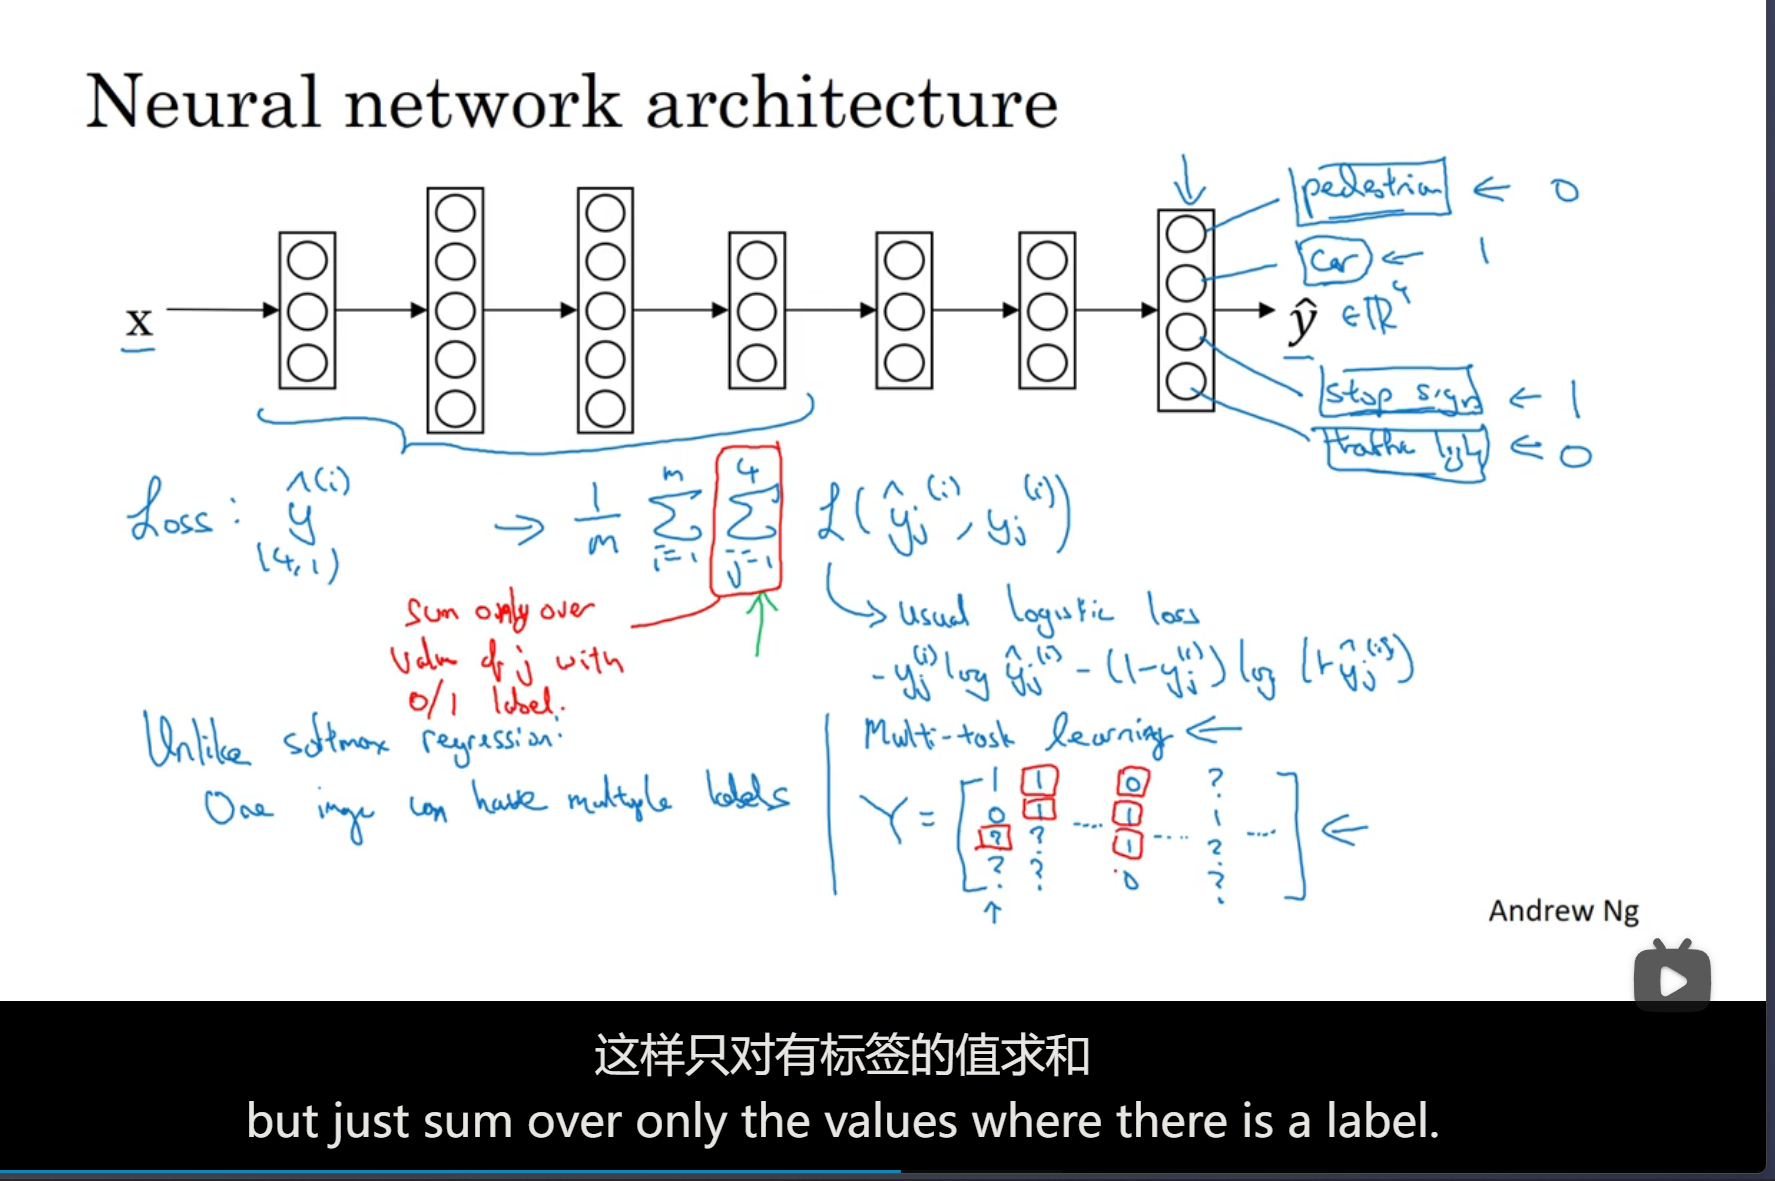 Neural network architecture
x
pedestrian ← 0
car ← 1
ŷ ∈ ℝ⁴
stop sign ← 1
traffic ← 0
Loss: ŷ^(i) → 1/m Σ_{i=1}^{m} Σ_{j=1}^{4} ℒ(ŷ_j^(i), y_j^(i))
(4,1)
Sum only over
value of j with
0/1 label.
usual logistic loss
- y_j^(i) log ŷ_j^(i) - (1-y_j^(i)) log (1-ŷ_j^(i))
Unlike softmax regression:
One image can have multiple labels
Multi-task learning ←
Y = [ 1 1 0 ?
0 1 .... 1 .... 1 .... ] ←
? ? 1 ?
? ? 0 ?
Andrew Ng
这样只对有标签的值求和
but just sum over only the values where there is a label.